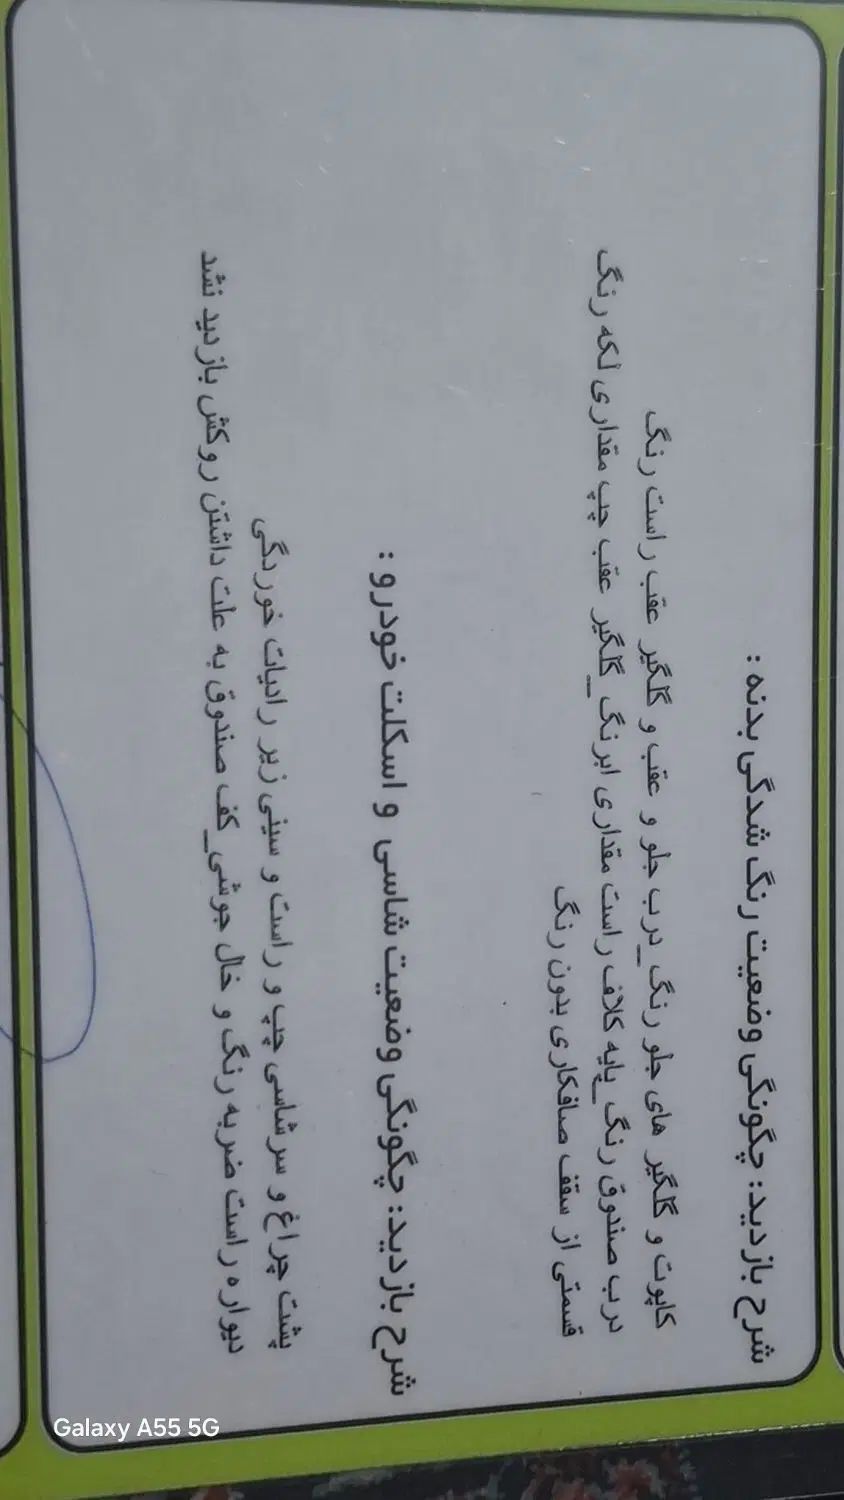 شرح بازدید: چگونگی وضعیت رنگ شدگی بدنه :
کاپوت و گلگیر های جلو رنگ_درب جلو و عقب و گلگیر عقب راست رنگ
درب صندوق رنگ_پایه کلاف راست مقداری ابرنگ_گلگیر عقب چپ مقداری لکه رنگ
قسمتی از سقف صافکاری بدون رنگ
شرح بازدید: چگونگی وضعیت شاسی و اسکلت خودرو :
پشت چراغ و سرشاسی چپ و راست و سینی زیر رادیات خوردگی
دیواره راست ضربه رنگ و خال جوشی_کف صندوق به علت داشتن روکش بازدید نشد
Galaxy A55 5G